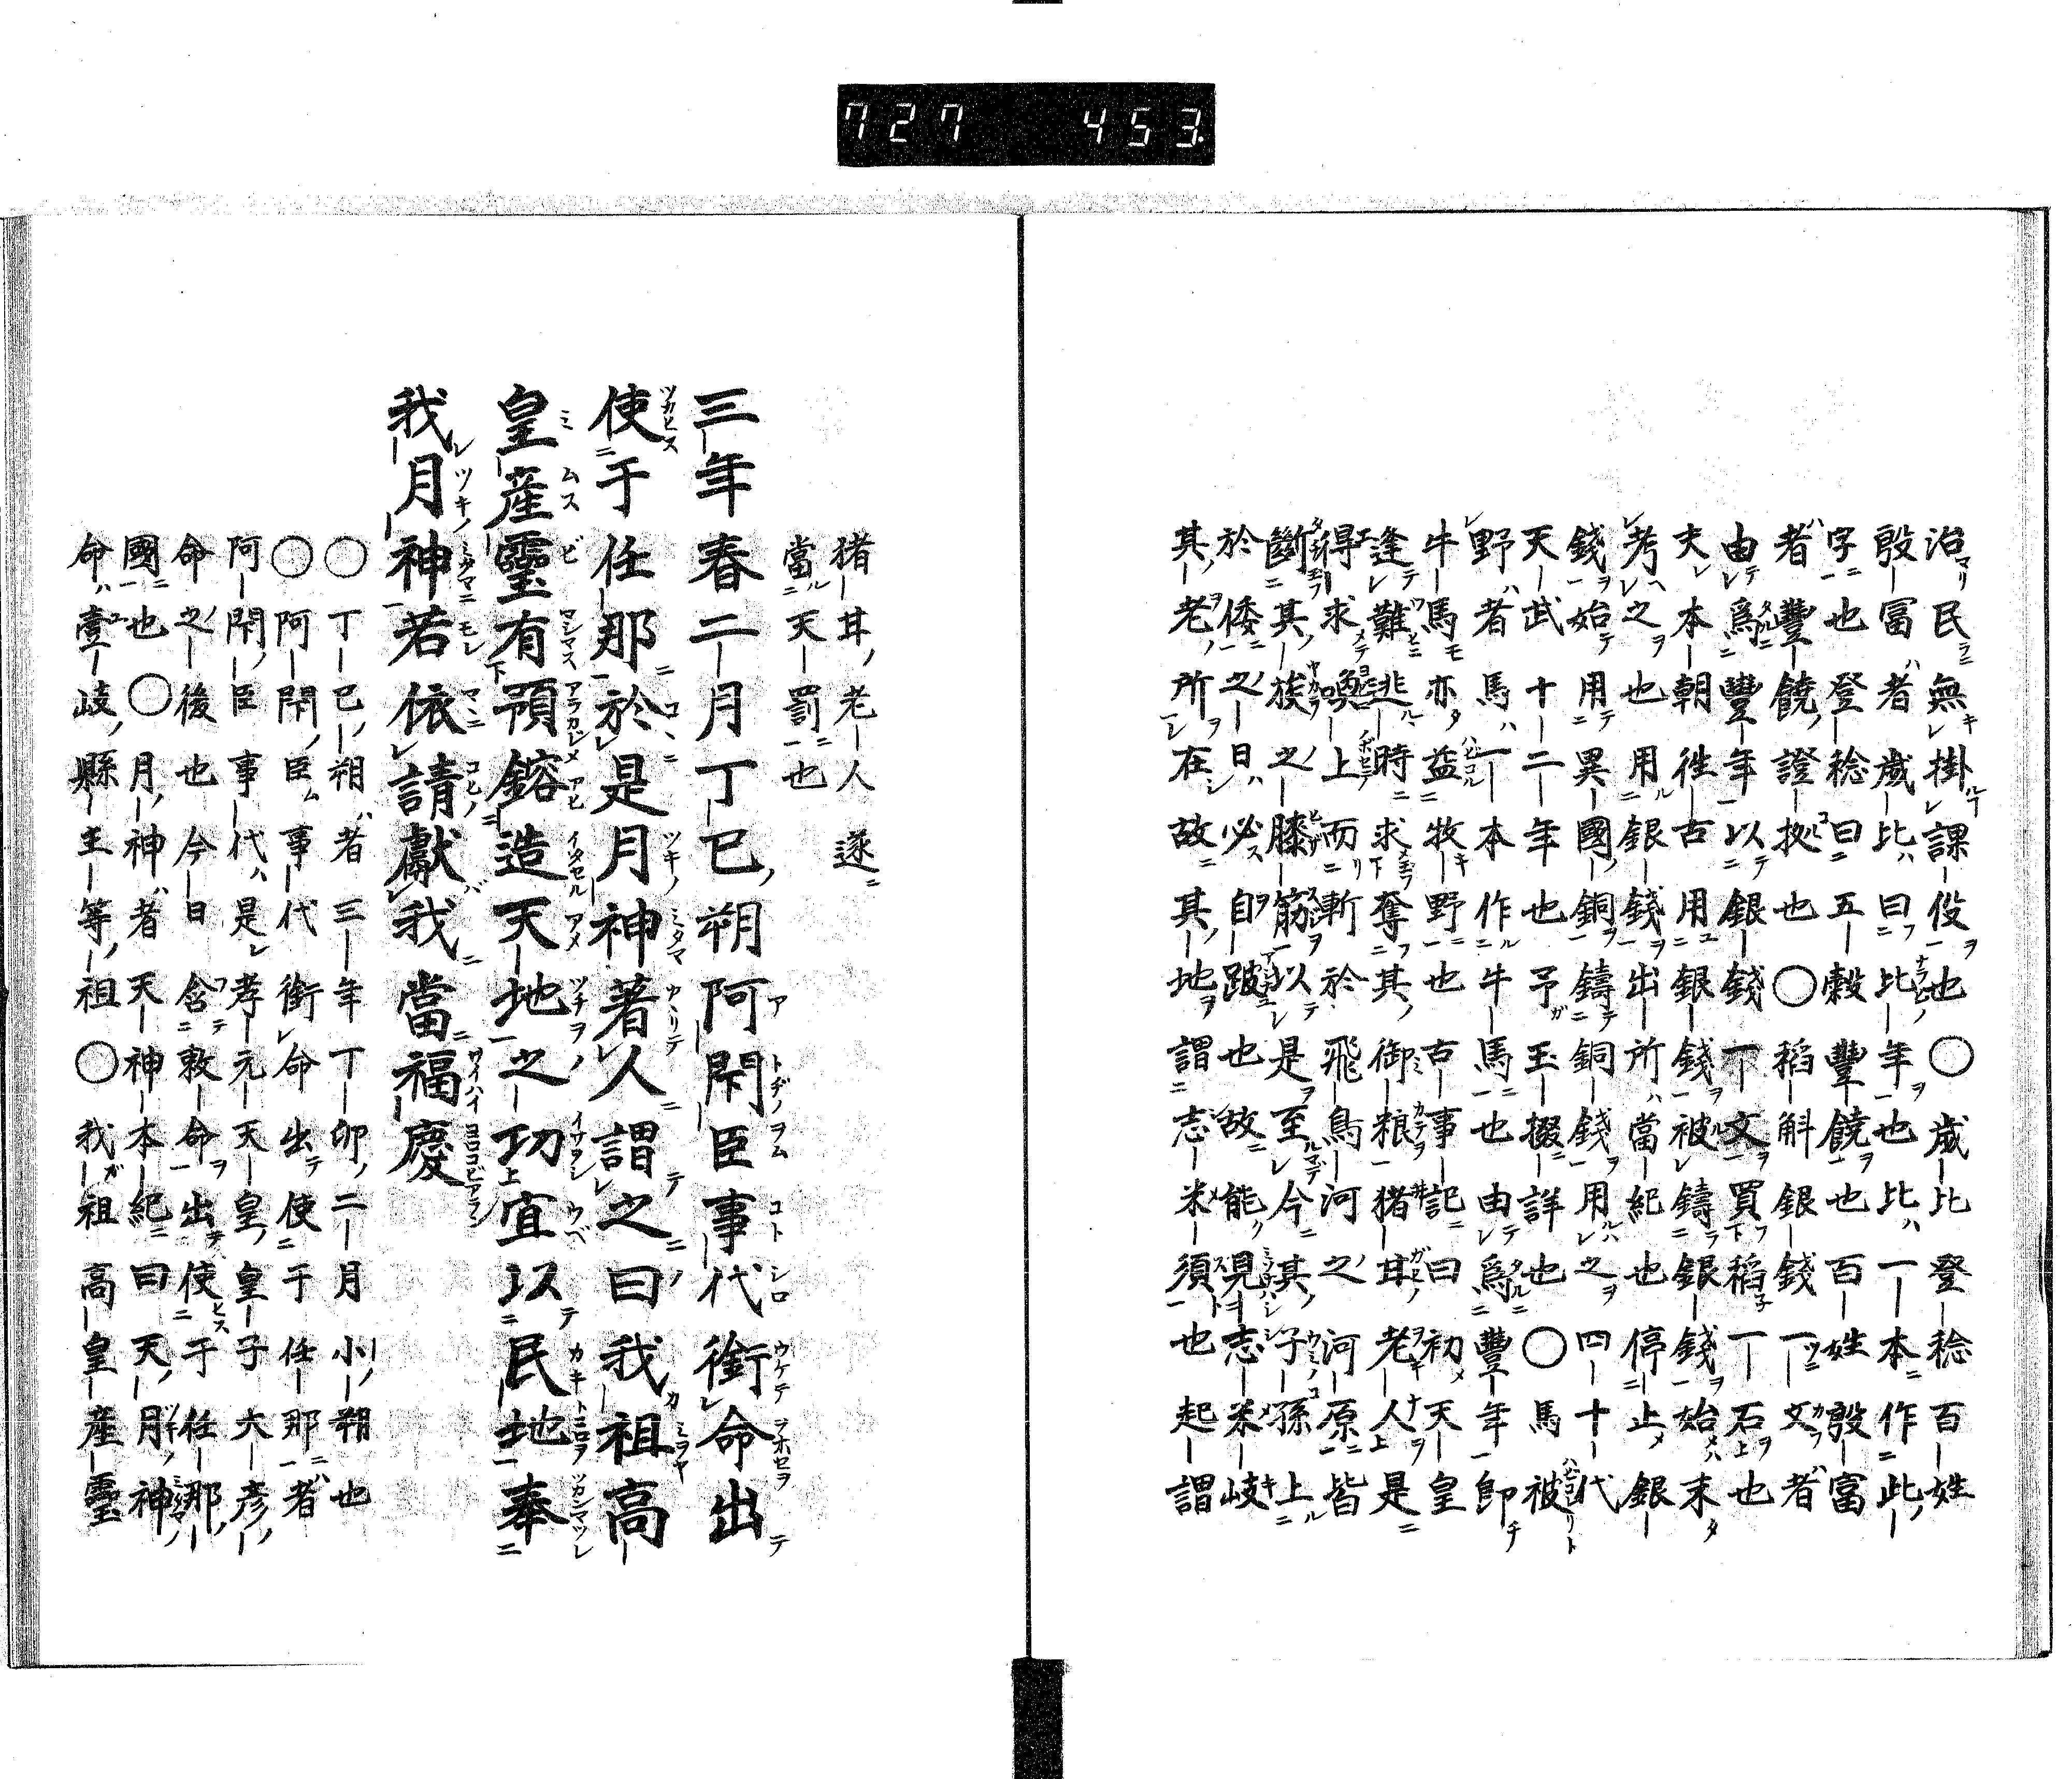 727 453
治民無掛課役也〇歳比登稔百姓
殷冨者歳比曰比年也比一本作此
字也登稔曰五穀豐饒也百姓殷富
者豐饒證拠也〇稻斛銀錢一文者
由爲豐年以銀錢一文買稻一石也
夫本朝徃古用銀錢被鑄銀錢始末
考之也用銀錢出所當紀也停止銀
錢始用異國銅鑄銅錢用之四十代
天武十二年也予玉掇詳也〇馬被
野者馬一本作牛馬也由爲豐年即
牛馬亦益牧野也古事記曰初天皇
逢難逃時求奪其御粮猪甘老人是
得求喚上而斬於飛鳥河之河原皆
斷其族之膝筋以是至今其子孫上
於倭之日必自跛也故能見志米岐
其老所在故其地謂志米須也起謂
猪甘老人遂
當天罰也
三年春二月丁巳朔阿閇臣事代銜命出
使于任那於是月神著人謂之曰我祖高
皇産靈有預鎔造天地之功宜以民地奉
我月神若依請獻我當福慶
〇丁巳朔者三年丁卯二月小朔也
〇阿閇臣事代銜命出使于任那者
阿閇臣事代是孝元天皇皇子大彦
命之後也今日含敕命出使于任那
國也〇月神者天神本紀曰天月神
命壹岐縣主等祖〇我祖高皇産靈